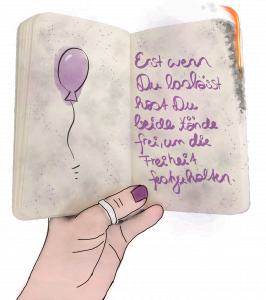 Erst wenn
Du loslässt
hast Du
beide Hände
frei, um die
Freiheit
festzuhalten.